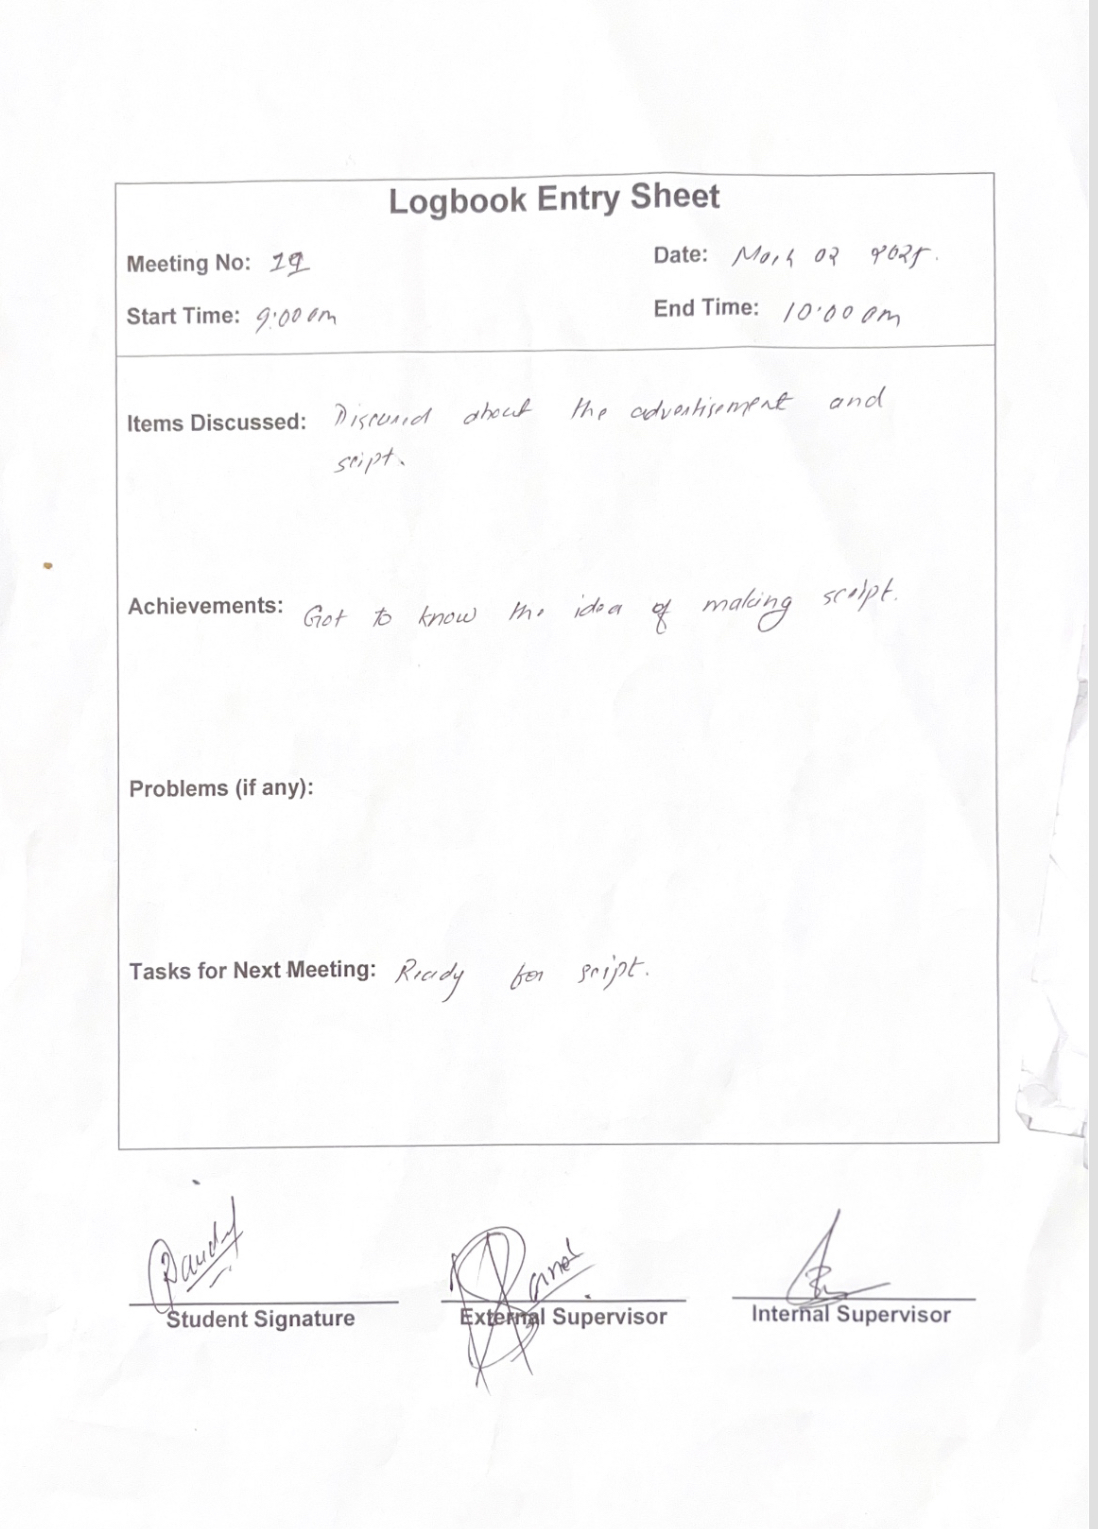 Logbook Entry Sheet
Meeting No: 19
Date: March 02 2025.
Start Time: 9:00 am
End Time: 10:00 am
Items Discussed: Discussed about the advertisement and
script.
Achievements: Got to know the idea of making script.
Problems (if any):
Tasks for Next Meeting: Ready for script.
Student Signature
External Supervisor
Internal Supervisor